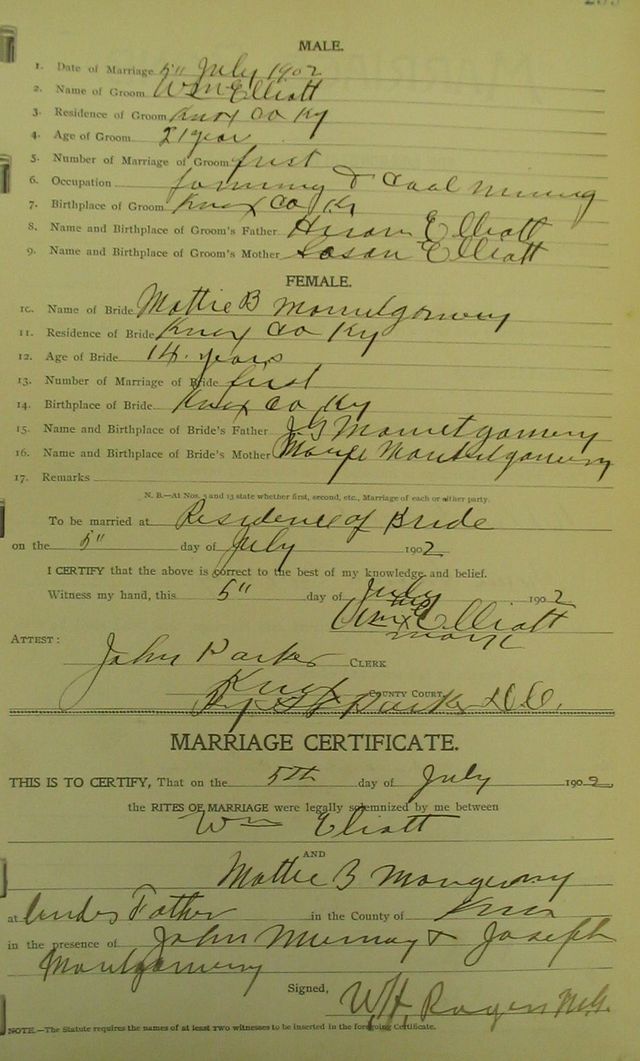 MALE.
1. Date of Marriage 5" July 1902
2. Name of Groom Wm Elliott
3. Residence of Groom Knox Co Ky
4. Age of Groom 21 year
5. Number of Marriage of Groom first
6. Occupation farming & Coal mining
7. Birthplace of Groom Knox Co Ky
8. Name and Birthplace of Groom's Father Hiram Elliott
9. Name and Birthplace of Groom's Mother Susan Elliott
FEMALE.
10. Name of Bride Mattie B Montgomery
11. Residence of Bride Knox Co Ky
12. Age of Bride 14 years
13. Number of Marriage of Bride first
14. Birthplace of Bride Knox Co Ky
15. Name and Birthplace of Bride's Father J G Montgomery
16. Name and Birthplace of Bride's Mother Montgomery
17. Remarks
N. B.—At Nos. 5 and 13 state whether first, second, etc., Marriage of each or either party.
To be married at Residence of Bride
on the 5" day of July 1902
I CERTIFY that the above is correct to the best of my knowledge and belief.
Witness my hand, this 5" day of July 1902
Wm X Elliott
mark
ATTEST:
John Parker CLERK
Knox COUNTY COURT.
By Parker D.C.
MARRIAGE CERTIFICATE.
THIS IS TO CERTIFY, That on the 5th day of July 1902,
the RITES OF MARRIAGE were legally solemnized by me between
Wm Eliott
AND
Mattie B
at Father in the County of Knox
in the presence of John Murray & Joseph
Montgomery
Signed, W.H. Rogers M.G.
NOTE.—The Statute requires the names of at least TWO witnesses to be inserted in the foregoing Certificate.